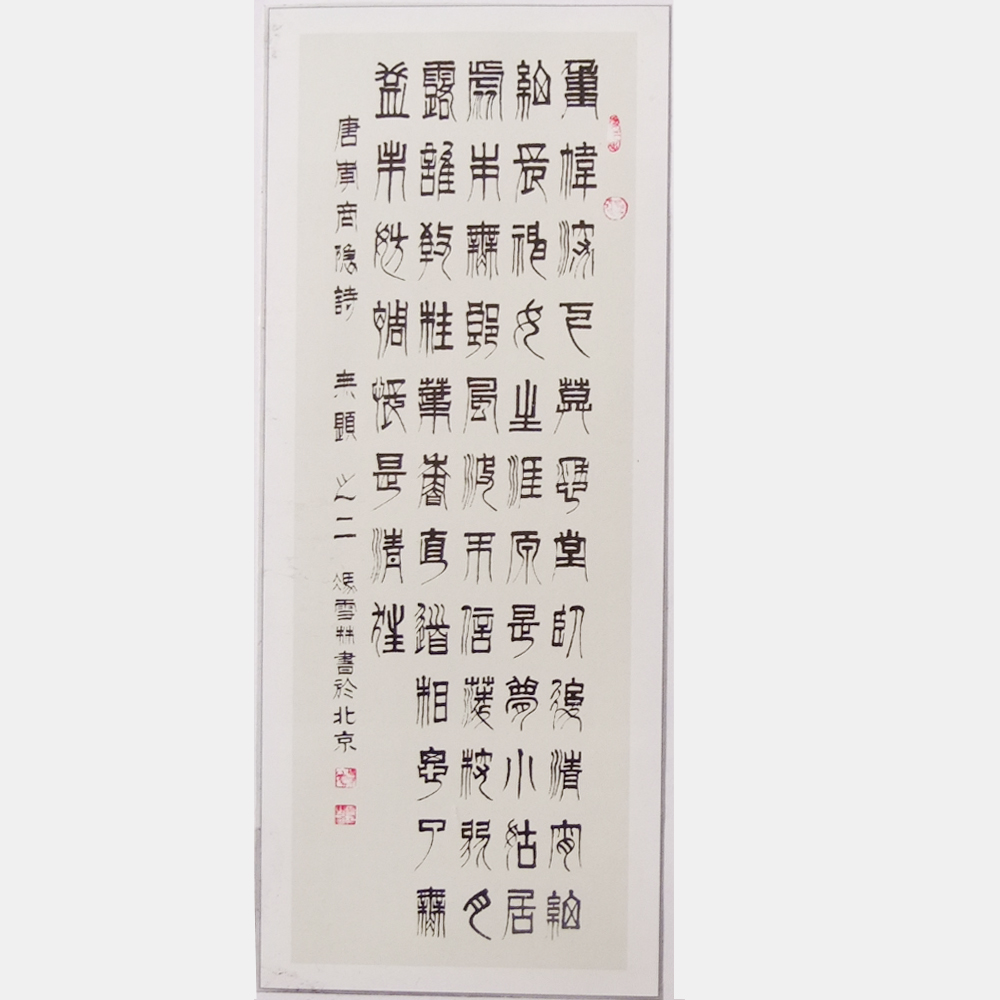 重幃深下莫愁堂臥後清宵細
細長神女生涯原是夢小姑居
處本無郎風波不信菱枝弱月
露誰教桂葉香直道相思了無
益未妨惆悵是清狂
唐李商隱詩 无題 之二 馮雪林書於北京